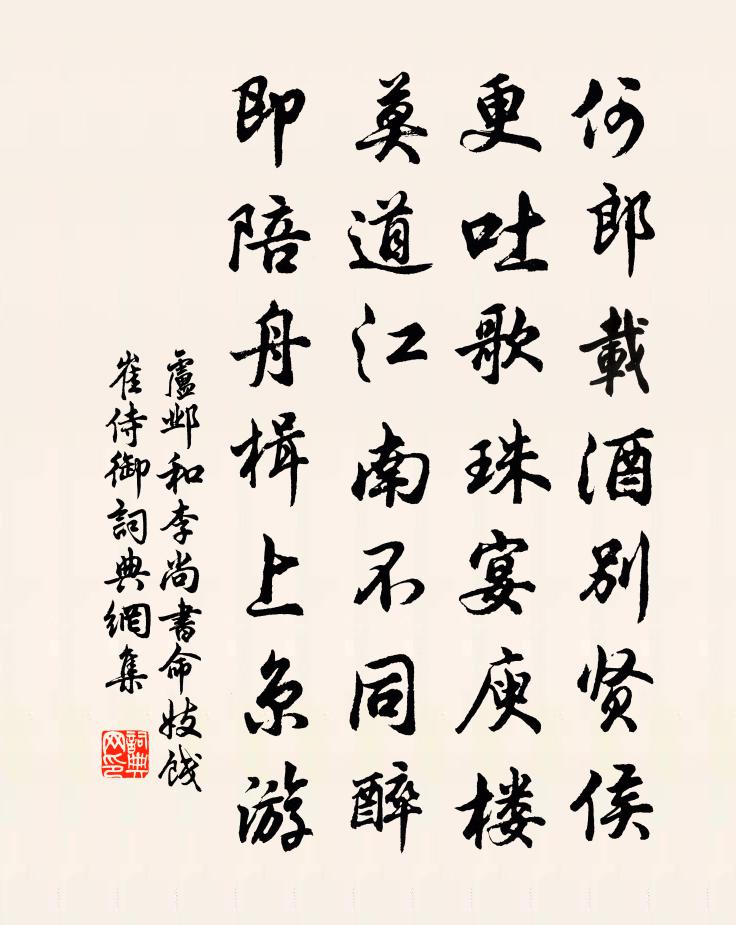 何郎載酒別贤侯
更吐歌珠宴庾楼
莫道江南不同醉
即陪舟楫上京游
盧邺和李尚書命妓餞
崔侍御詞典網集
詞典網印